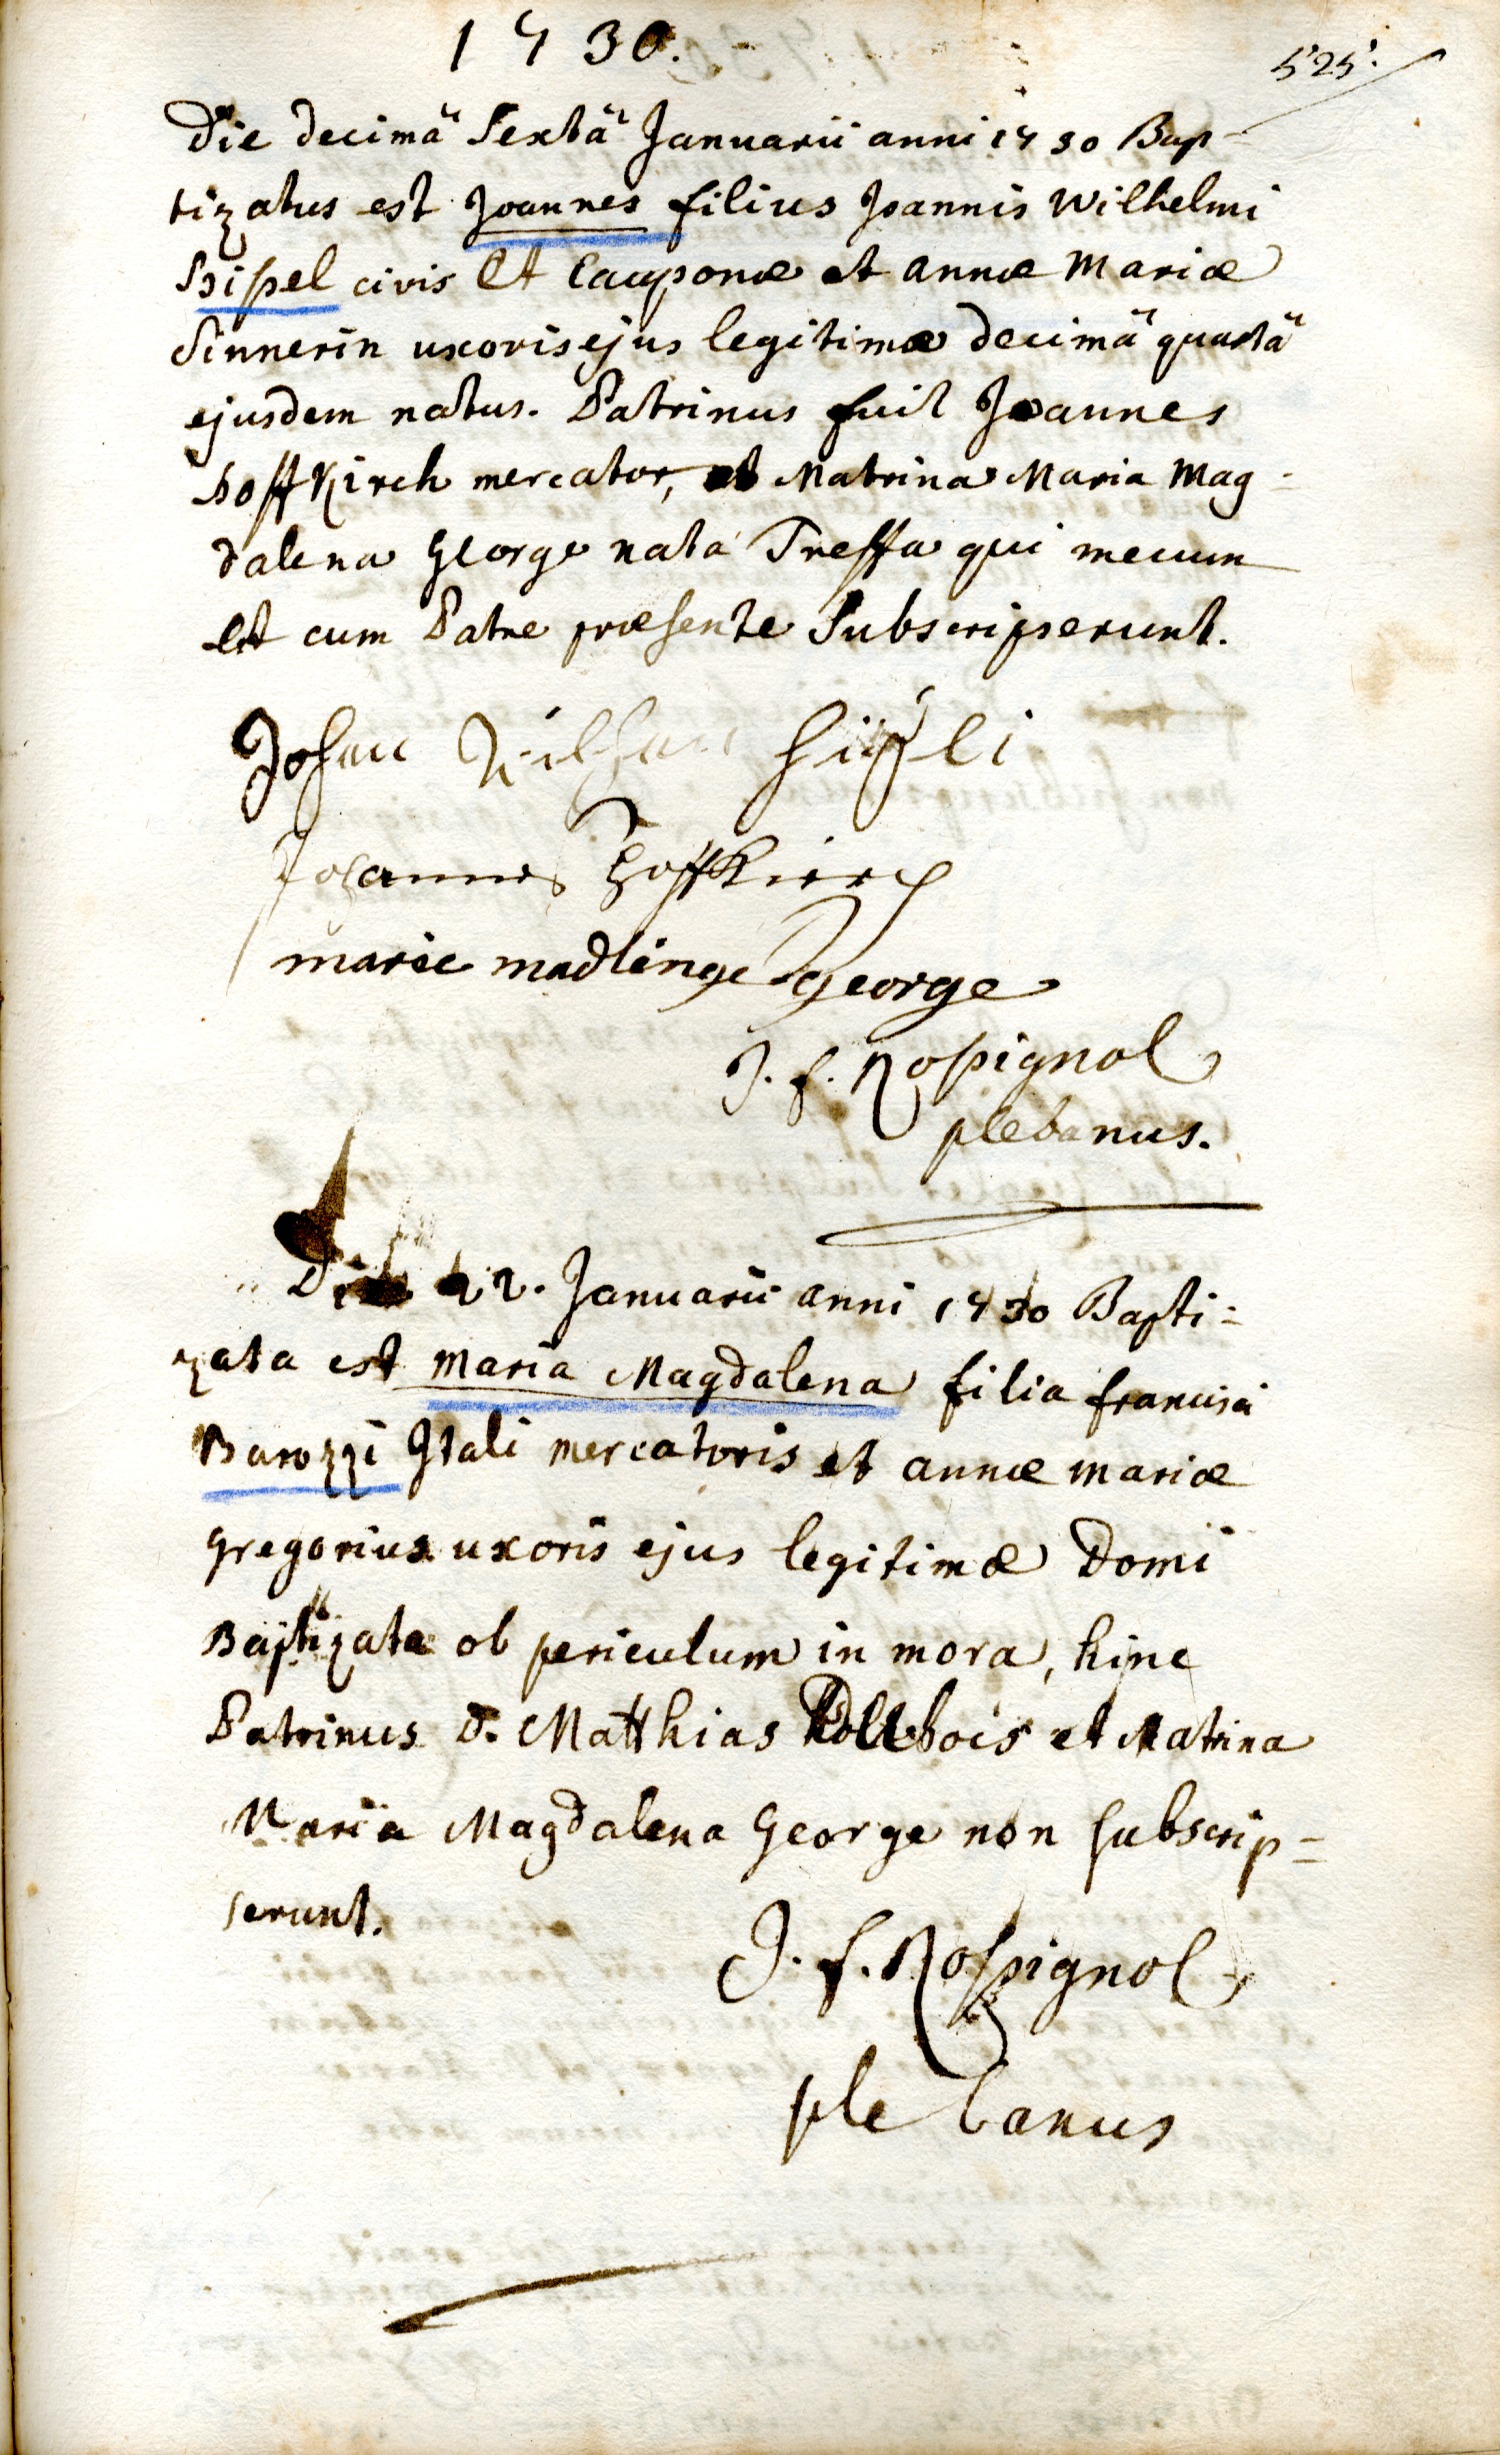 1730.
525.
Die decimâ Sextâ Januarii anni 1730 Bap-
tizatus est Joannes filius Joannis Wilhelmi
civis et Cauponæ et annæ Mariæ
Sinnerin uxoris ejus legitimæ decimâ quartâ
ejusdem natus. Patrinus fuit Joannes
hoffKirch mercator, et Matrina Maria Mag-
dalena George nata Treffa qui mecum
et cum Patre præsente Subscripserunt.
Johan
Johannes hoffKirch
marie madlenge george
J. f. Rossignol
plebanus.
Die 22. Januarii anni 1730 Bapti-
zata est Maria Magdalena filia francisci
Barozzi Itali mercatoris et annæ mariæ
gregorius uxoris ejus legitimæ Domi
Baptizata ob periculum in mora, hinc
Patrinus D. Matthias et Matrina
Maria Magdalena George non subscrip-
serunt.
J. f. Rossignol
plebanus